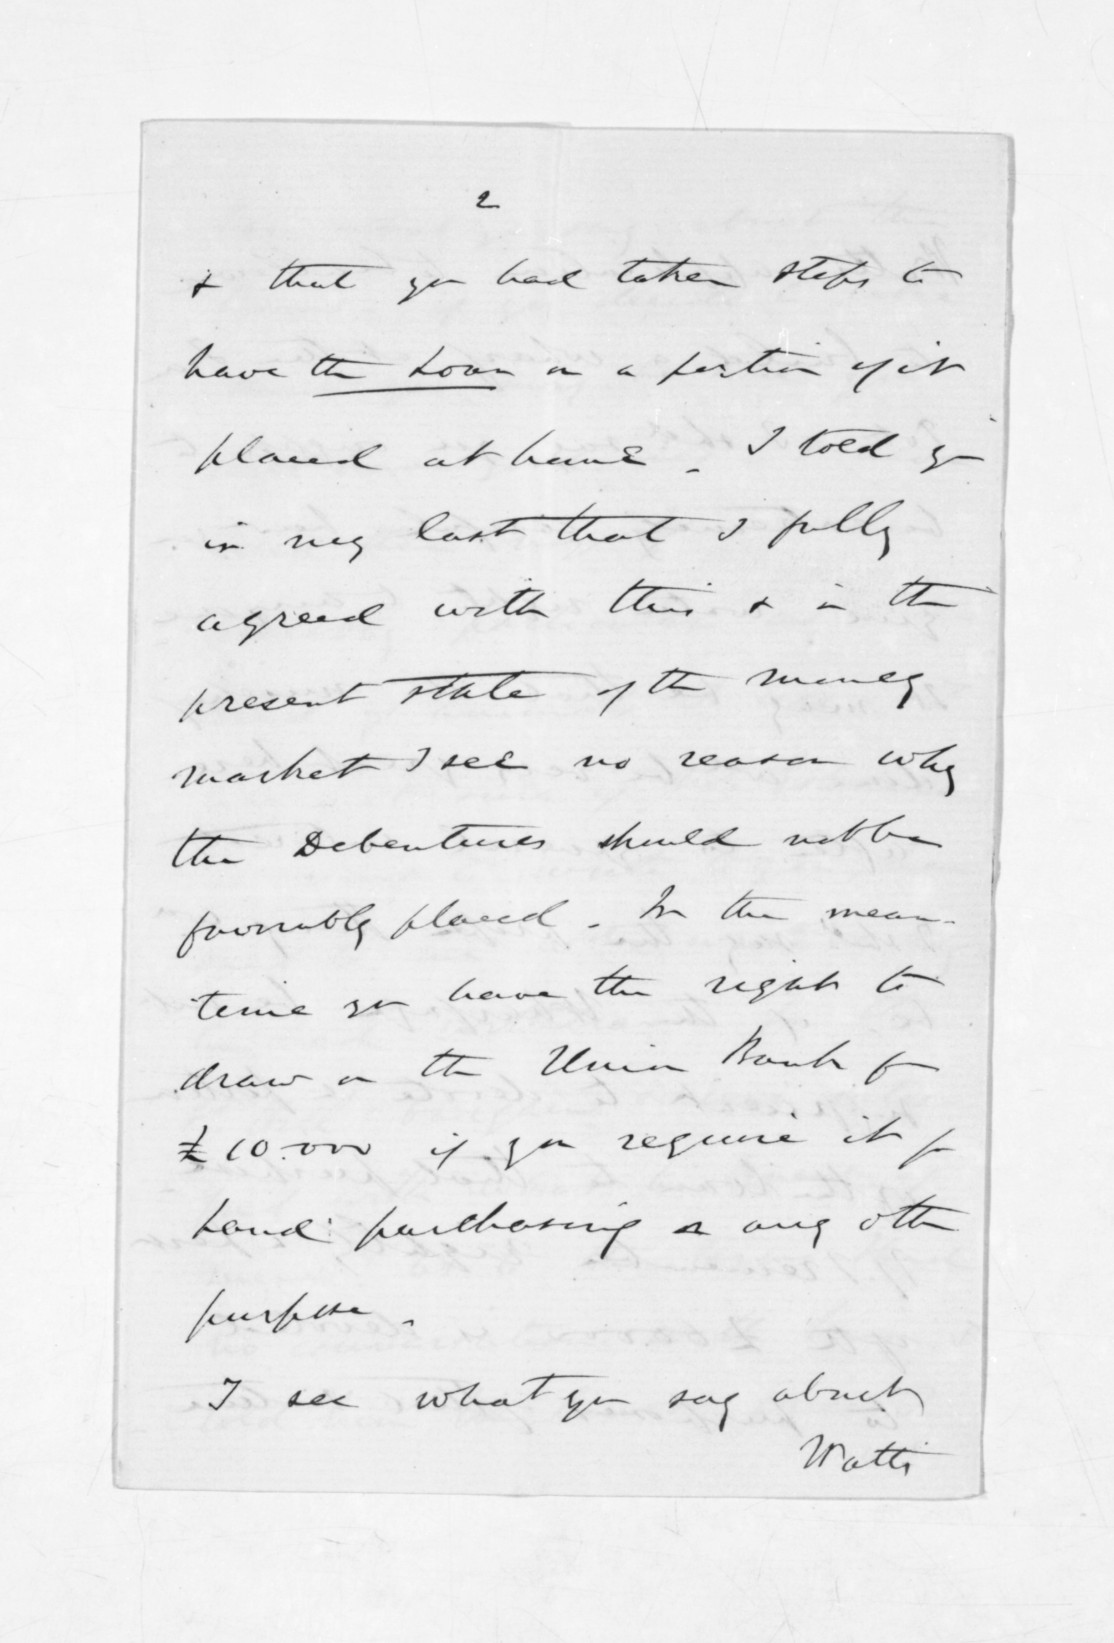 2
& that you had taken steps to
have the Loan or a portion of it
placed at home. I told you
in my last that I fully
agreed with this & in the
present state of the money
market I see no reason why
the Debentures should not be
favorably placed. In the mean-
time you have the right to
draw on the Union Bank for
£10.000 if you require it for
Land purchasing or any other
purpose.
I see what you say about
Watts